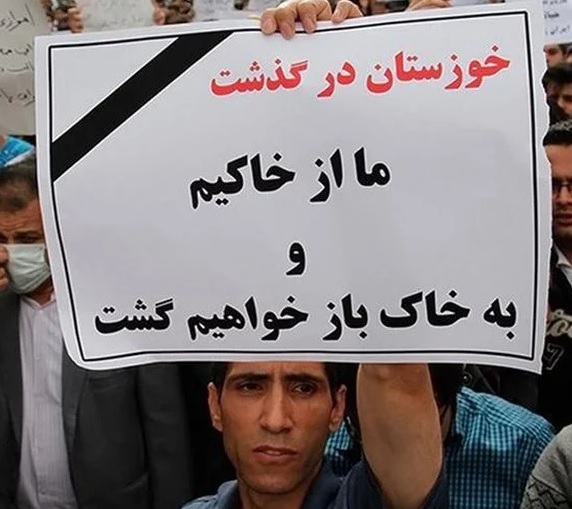 خوزستان در گذشت
ما از خاکیم
و
به خاک باز خواهیم گشت